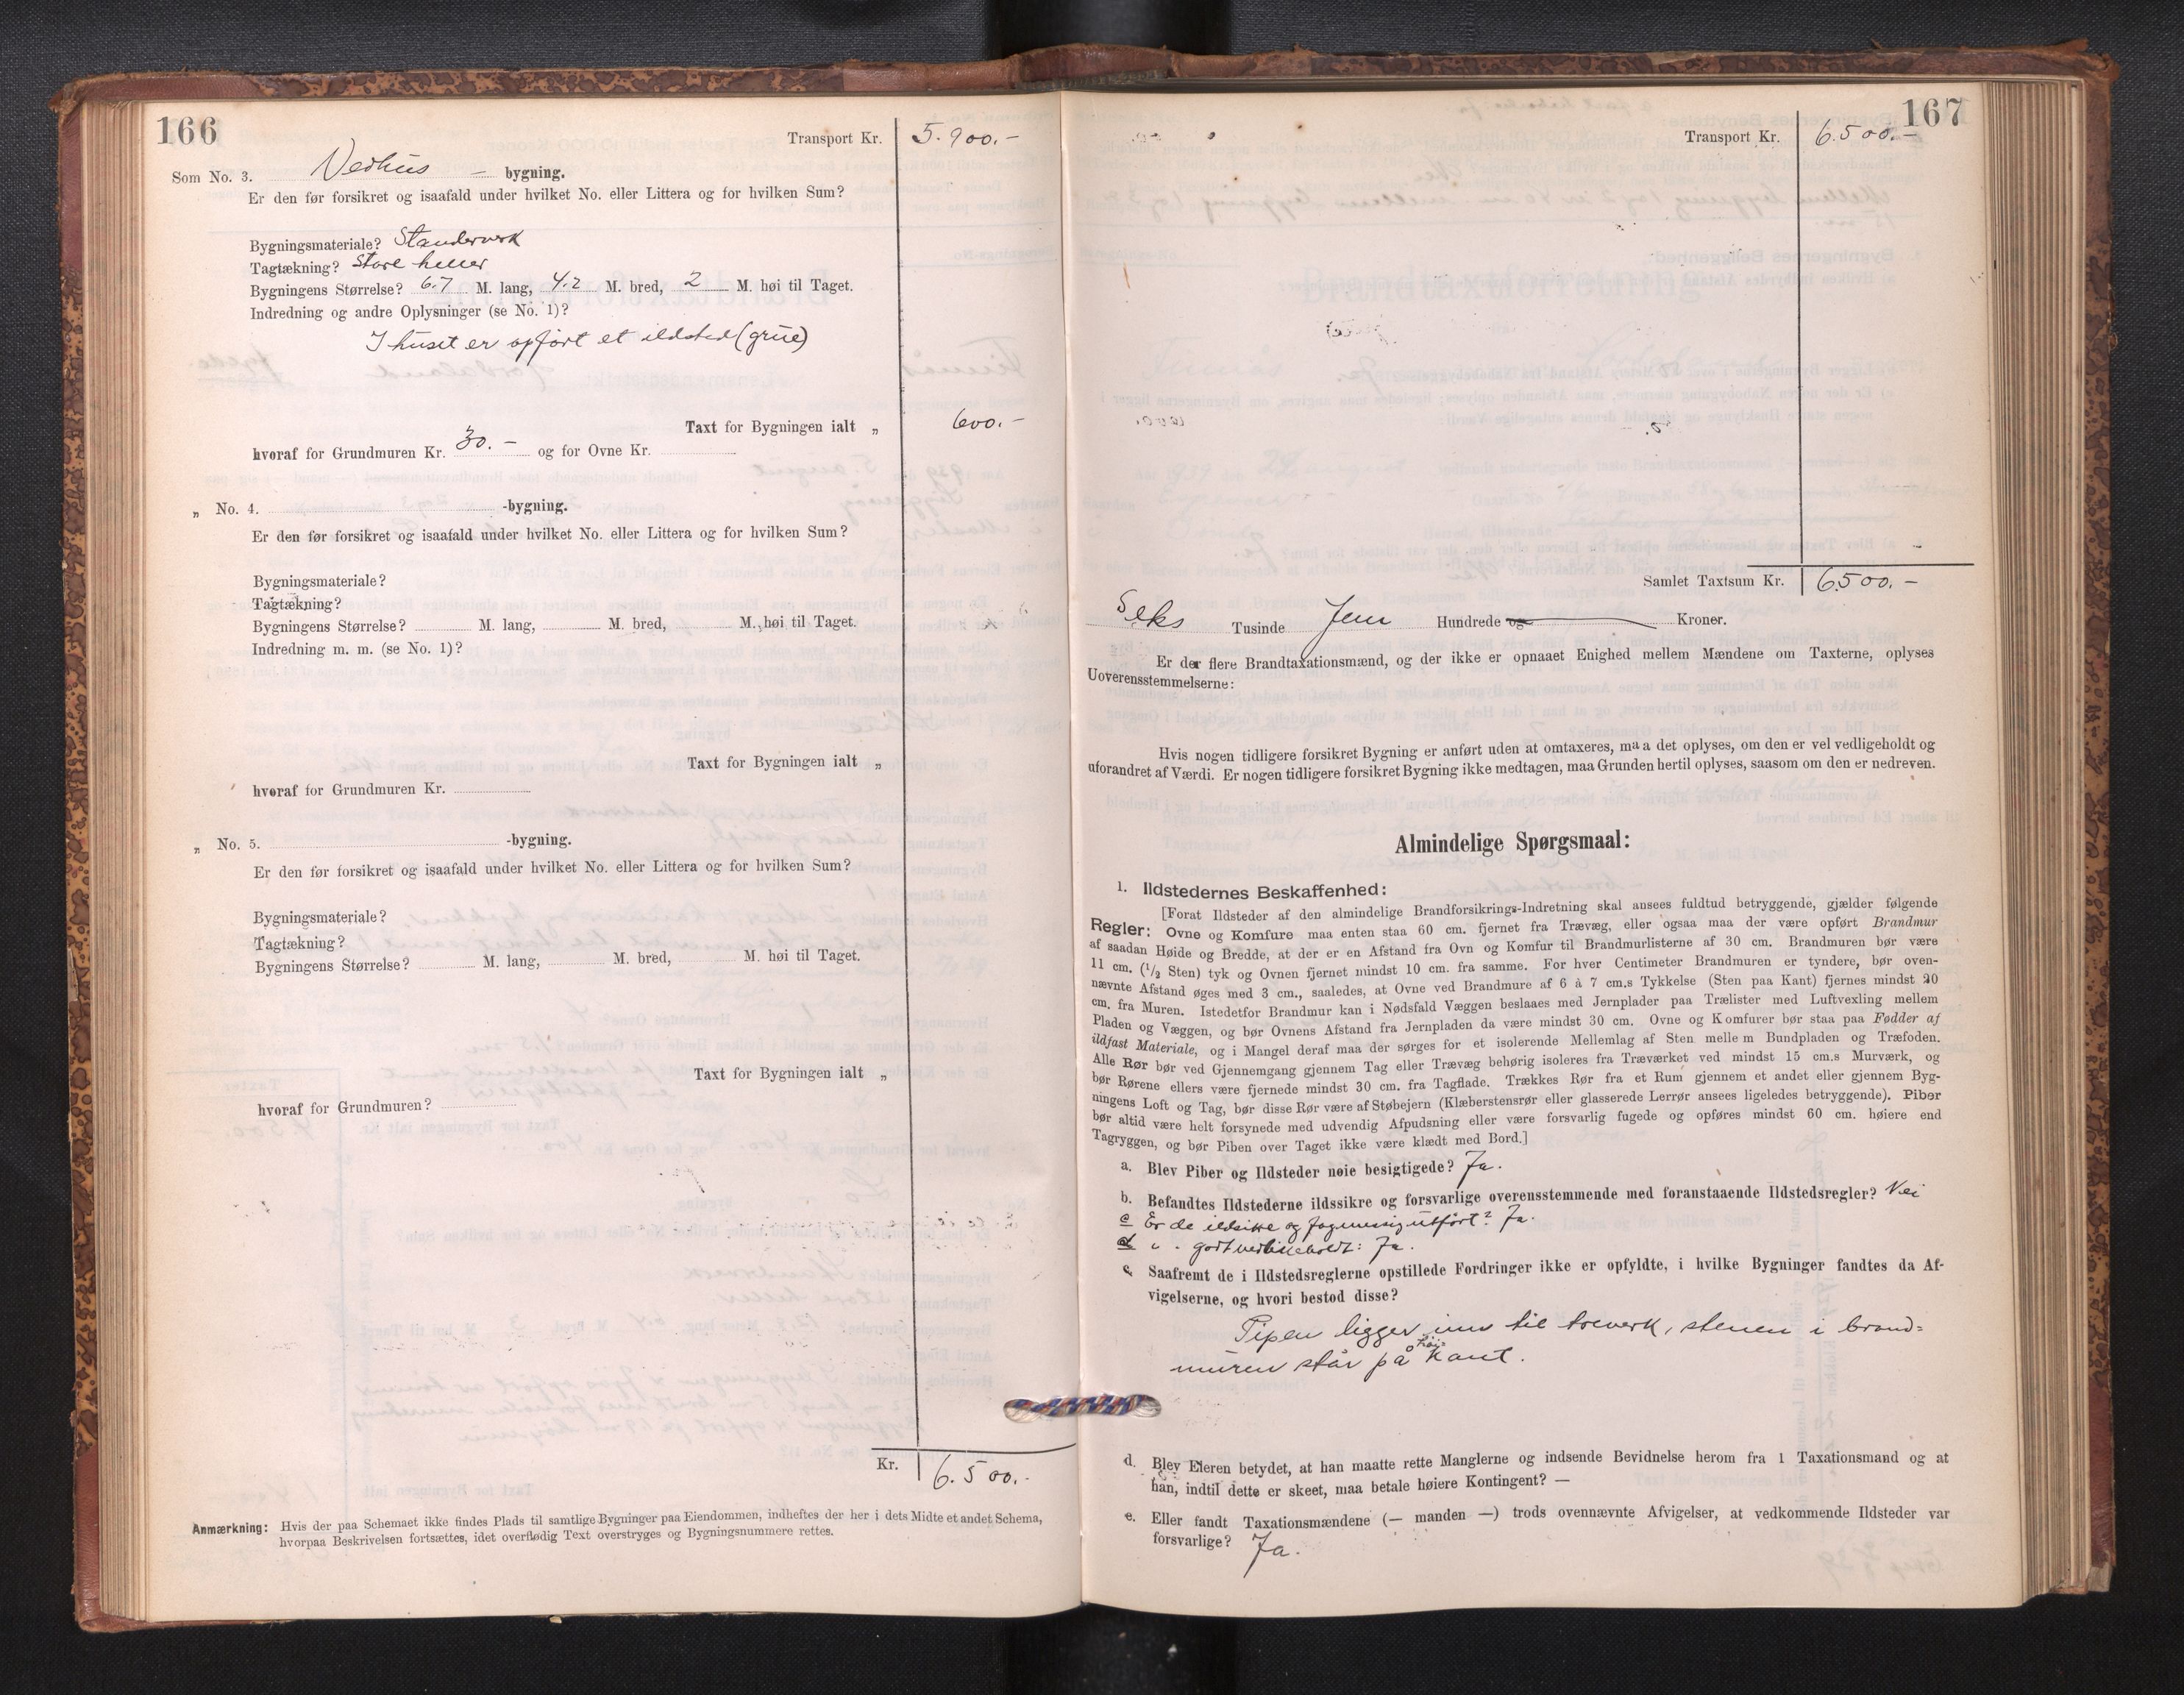 166
Transport Kr. 5.900.-
Som No. 3. Vedhus – bygning.
Er den før forsikret og isaafald under hvilket No. eller Littera og for hvilken Sum?
Bygningsmateriale? Standerverk
Tagtækning? Store heller
Bygningens Størrelse? 6.7 M. lang, 4.2 M. bred, 2 M. høi til Taget.
Indredning og andre Oplysninger (se No. 1)?
I huset er opført et ildsted (grue)
Taxt for Bygningen ialt „ 600.-
hvoraf for Grundmuren Kr. 30.- og for Ovne Kr.
„ No. 4. -bygning.
Er den før forsikret og isaafald under hvilket No. eller Littera og for hvilken Sum?
Bygningsmateriale?
Tagtækning?
Bygningens Størrelse? M. lang, M. bred, M. høi til Taget.
Indredning m. m. (se No. 1)?
Taxt for Bygningen ialt „
hvoraf for Grundmuren Kr.
„ No. 5. -bygning.
Er den før forsikret og isaafald under hvilket No. eller Littera og for hvilken Sum?
Bygningsmateriale?
Tagtækning?
Bygningens Størrelse? M. lang, M. bred, M. høi til Taget.
Taxt for Bygningen ialt „
hvoraf for Grundmuren?
Kr. 6.500.-
Anmærkning: Hvis der paa Schemaet ikke findes Plads til samtlige Bygninger paa Eiendommen, indheftes der her i dets Midte et andet Schema,
hvorpaa Beskrivelsen fortsættes, idet overflødig Text overstryges og Bygningsnummere rettes.
167
Transport Kr. 6.500.-
Samlet Taxtsum Kr. 6500.-
Seks Tusinde fem Hundrede og Kroner.
Er der flere Brandtaxationsmænd, og der ikke er opnaaet Enighed mellem Mændene om Taxterne, oplyses
Uoverensstemmelserne:
Hvis nogen tidligere forsikret Bygning er anført uden at omtaxeres, maa det oplyses, om den er vel vedligeholdt og
uforandret af Værdi. Er nogen tidligere forsikret Bygning ikke medtagen, maa Grunden hertil oplyses, saasom om den er nedreven.
Almindelige Spørgsmaal:
1. Ildstedernes Beskaffenhed:
[Forat Ildsteder af den almindelige Brandforsikrings-Indretning skal ansees fuldtud betryggende, gjælder følgende
Regler: Ovne og Komfure maa enten staa 60 cm. fjernet fra Trævæg, eller ogsaa maa der være opført Brandmur
af saadan Høide og Bredde, at der er en Afstand fra Ovn og Komfur til Brandmurlisterne af 30 cm. Brandmuren bør være
11 cm. (1/2 Sten) tyk og Ovnen fjernet mindst 10 cm. fra samme. For hver Centimeter Brandmuren er tyndere, bør oven-
nævnte Afstand øges med 3 cm., saaledes, at Ovne ved Brandmure af 6 à 7 cm.s Tykkelse (Sten paa Kant) fjernes mindst 20
cm. fra Muren. Istedetfor Brandmur kan i Nødsfald Væggen beslaaes med Jernplader paa Trælister med Luftvexling mellem
Pladen og Væggen, og bør Ovnens Afstand fra Jernpladen da være mindst 30 cm. Ovne og Komfurer bør staa paa Fødder af
ildfast Materiale, og i Mangel deraf maa der sørges for et isolerende Mellemlag af Sten mellem Bundpladen og Træfoden.
Alle Rør bør ved Gjennemgang gjennem Tag eller Trævæg behørig isoleres fra Træværket ved mindst 15 cm.s Murværk, og
bør Rørene ellers være fjernede mindst 30 cm. fra Tagflade. Trækkes Rør fra et Rum gjennem et andet eller gjennem Byg-
ningens Loft og Tag, bør disse Rør være af Støbejern (Klæberstensrør eller glasserede Lerrør ansees ligeledes betryggende). Piber
bør altid være helt forsynede med udvendig Afpudsning eller være forsvarlig fugede og opføres mindst 60 cm. høiere end
Tagryggen, og bør Piben over Taget ikke være klædt med Bord.]
a. Blev Piber og Ildsteder nøie besigtigede? Ja.
b. Befandtes Ildstederne ildssikre og forsvarlige overensstemmende med foranstaaende Ildstedsregler? Nei
c Er de ildsikre og fagmessig utført? Ja.
d " - godt vedlikeholdt: Ja.
c. Saafremt de i Ildstedsreglerne opstillede Fordringer ikke er opfyldte, i hvilke Bygninger fandtes da Af-
vigelserne, og hvori bestod disse?
Pipen ligger inn til treverk, stenen i brand-
muren står på høi- kant.
d. Blev Eieren betydet, at han maatte rette Manglerne og indsende Bevidnelse herom fra 1 Taxationsmand og at
han, indtil dette er skeet, maa betale høiere Kontingent? —
e. Eller fandt Taxationsmændene (— manden —) trods ovennævnte Afvigelser, at vedkommende Ildsteder var
forsvarlige? Ja.